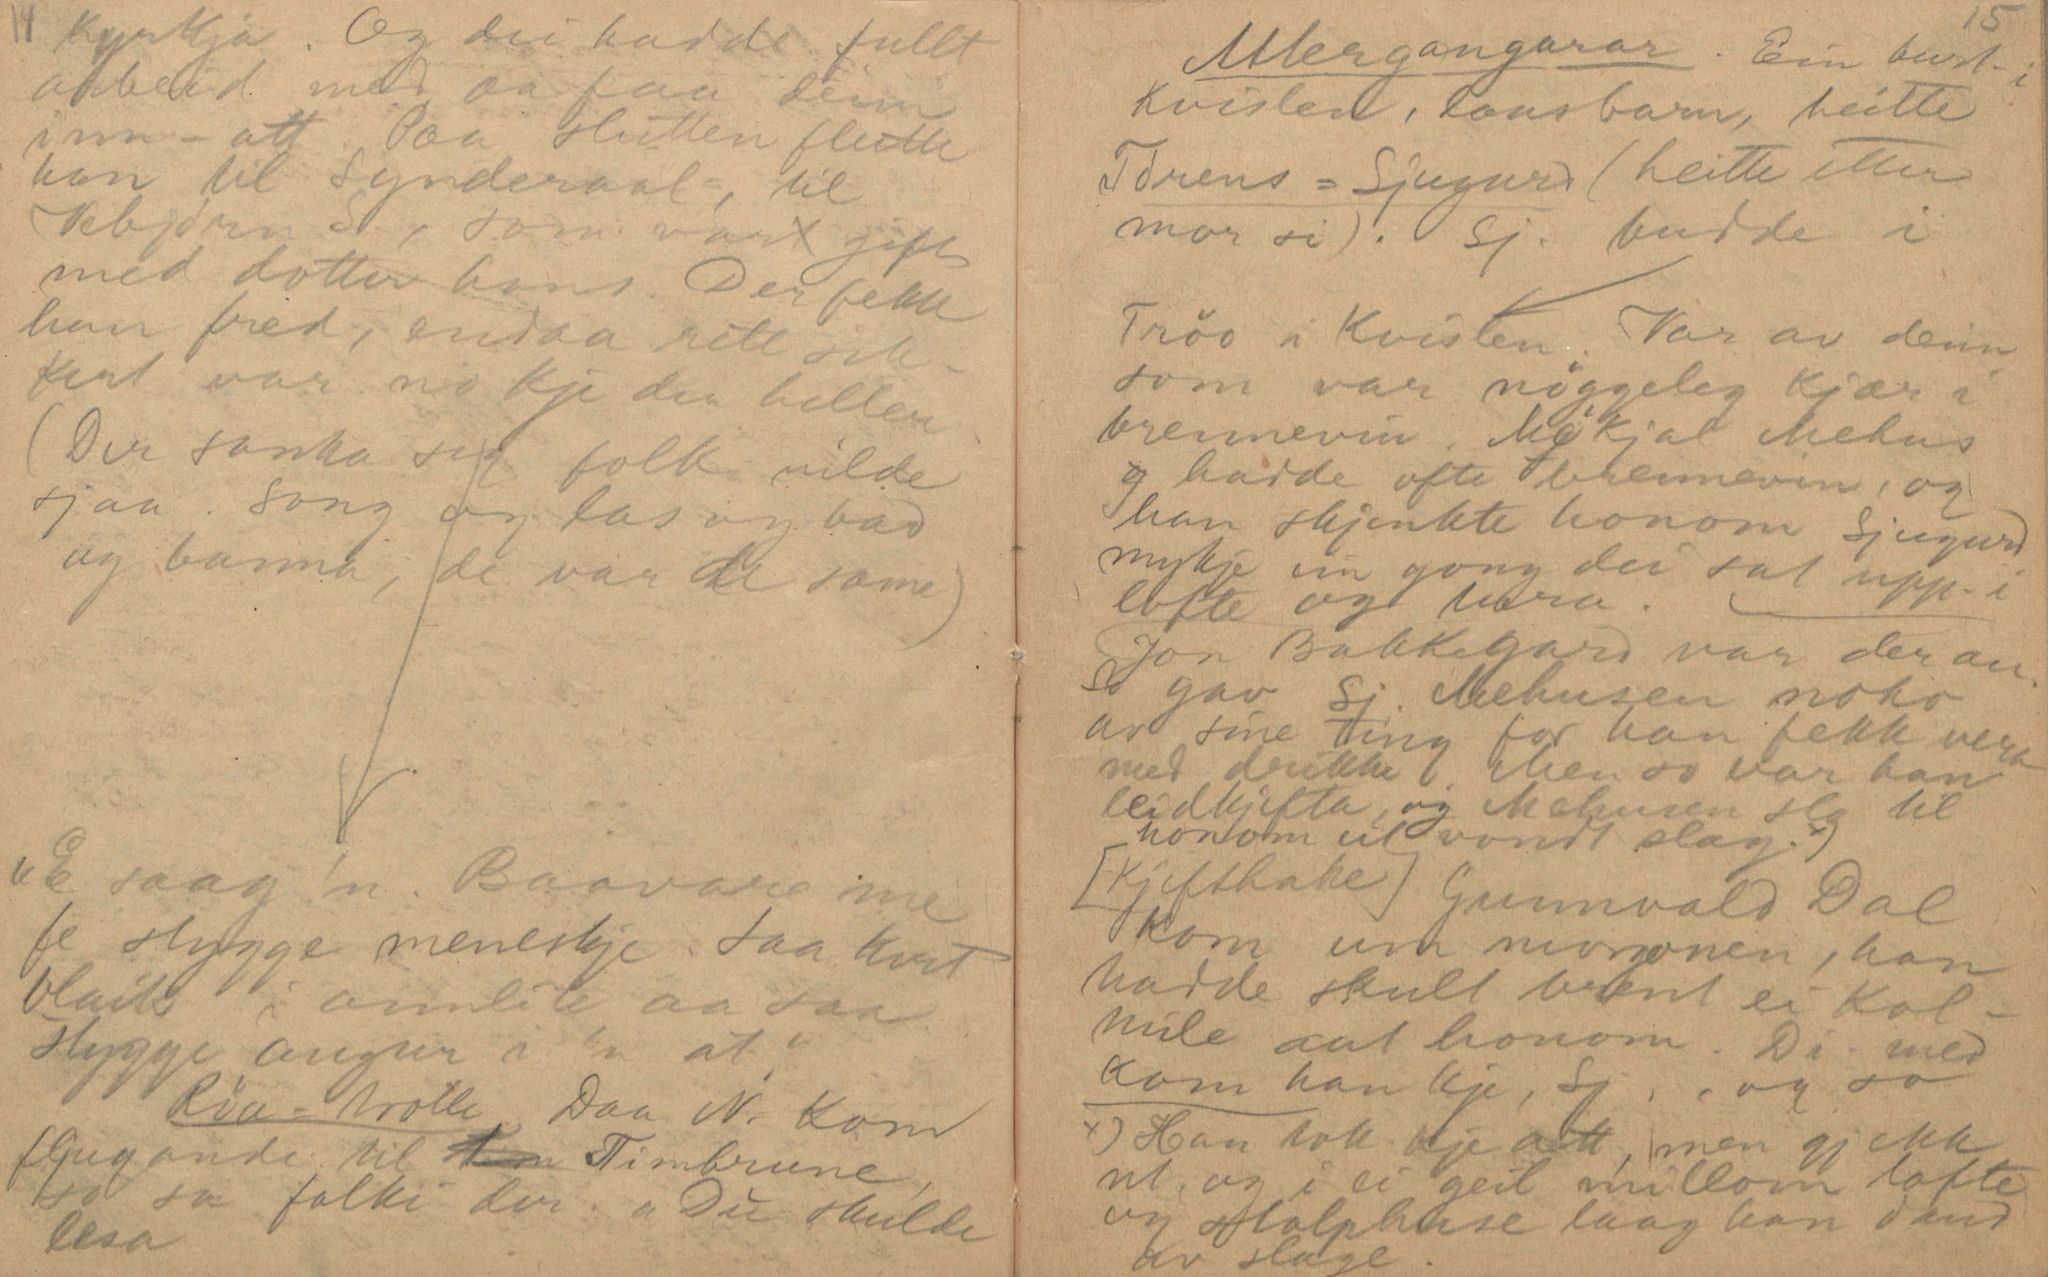 14
kyrkja. Og dei hadde fullt
arbeid med aa faa deim
inn-att. Paa slutten flutte
han til Synderaal=, til
Vebjörn S, som var gift
med dotter hans. Der fekk
han fred, endaa rett sik-
kert var no kje der heller
(Der sanka seg folk vilde
sjaa. Song og las og bad
og banna, de var de same)
"E saag 'n. Baavare me
fe stygge meneskje. Saa kvit
bleik i annlite aa saa
stygge augur i 'n at"
Röa-trolle. Daa N. kom
fljugande til Timbrune,
so sa folki der. "Du skulde
lesa
15
Attergangarar. Ein burt-i
Kvisten, lausbarn, heitte
Törens=Sjugurd (heitte etter
mor si). Sj. budde i
Tröo i Kvisten. Var av deim
som var nöggeleg kjær i
brennevin. Mikjal Mehus
hadde ofte brennevin, og
han skjenkte honom Sjugurd
mykje ein gong dei sat upp-i
lofte og tura.
Jon Bakkegard var der au.
So gav Sj. Mehusen noko
av sine ting for han fekk vera
med drikke. Men so var han
leidkjefta, og Mehusen slo til
honom eit vondt slag. x)
[Kjefthake] Gunnvald Dal
kom um morgonen, han
hadde skult brent ei kol-
mile aat honom. Di med
kom han kje, Sj., og so
x) Han tok kje att, men gjekk
ut, og i ei geil millom lofte
og stolphuse laag han daud
av slage.